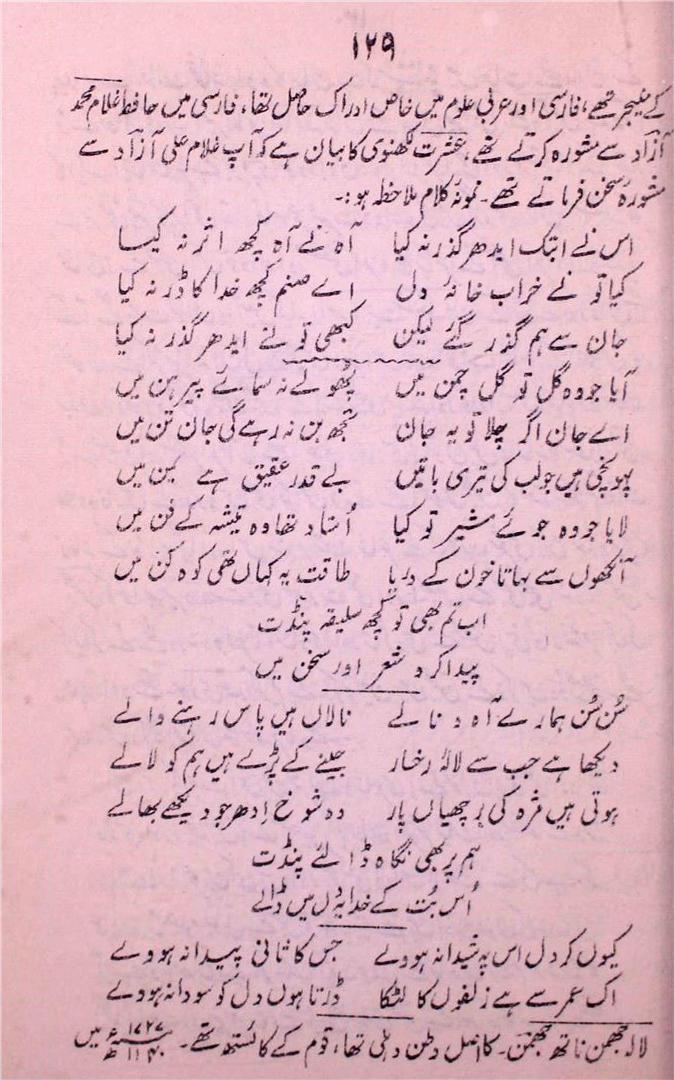 ۱۲۹
کے منیجر تھے، فارسی اور عربی علوم میں خاص ادراک حاصل تھا، فارسی میں حافظ غلام محمد
آزاد سے مشورہ کرتے تھے، عشرت لکھنوی کا بیان ہے کہ آپ غلام علی آزاد سے
مشورۂ سخن فرماتے تھے۔ نمونہ کلام ملاحظہ ہو :۔
اس نے ابتک ایدھر گذر نہ کیا آہ نے آہ کچھ اثر نہ کیا
کیا تو نے خراب خانۂ دل اے صنم کچھ خدا کا ڈر نہ کیا
جان سے ہم گذر گئے لیکن کبھی تو نے ایدھر گذر نہ کیا
آیا جو وہ گل تو گل چمن میں پھولے نہ سمائے پیرہن میں
اے جان اگر چلا تو یہ جان تجھ بن نہ رہے گی جان تن میں
پہونچی ہیں جو لب کی تیری باتیں بے قدر عقیق ہے یمن میں
لایا جو وہ جوئے شیر تو کیا اُستاد تھا وہ تیشہ کے فن میں
آنکھوں سے بہاتا خون کے دریا طاقت یہ کہاں تھی کوہ کن میں
اب تم بھی تو کچھ سلیقہ پنڈت
پیدا کرو شعر اور سخن میں
سُن سُن ہمارے آہ و نالے نالاں ہیں پاس رہنے والے
دیکھا ہے جب سے لالۂ رخسار جینے کے پڑے ہیں ہم کو لالے
ہوتی ہیں مژہ کی برچھیاں پار وہ شوخ اِدھر جو دیکھے بھالے
ہم پر بھی نگاہ ڈالئے پنڈت
اُس بُت کے خدا یہ دل میں ڈالے
کیوں کر دل اس پہ شیدا نہ ہووے جس کا ثانی پیدا نہ ہووے
اک عمر سے ہے زلفوں کا لٹکا ڈرتا ہوں دل کو سودا نہ ہووے
لالہ جھمن ناتھ جھمن۔ کا اصل وطن دہلی تھا، قوم کے کائستھ تھے۔ ۱۷۲۷ء ۱۱۴۰ھ میں